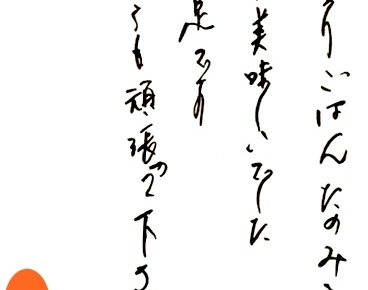 りごはんたのみ
美味しいでした
足であり
うも頑張って下さ